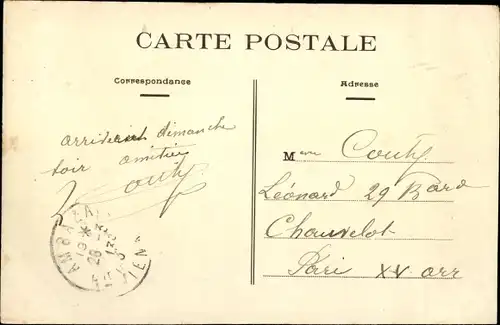 CARTE POSTALE
Correspondance
Adresse
arriverai dimanche
soir amitiés
Couty
Mme Couty
Léonard 29 Bard
Chauvelot
Pari XV arr
AMBAZAC
19 *
26
VIENNE